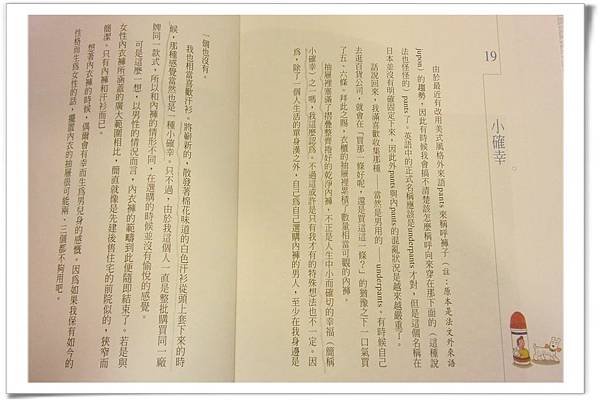 19
小確幸
由於最近有改用美式風格外來語pants來稱呼褲子（註：原本是法文外來語
jupon）的趨勢，因此有時候我會搞不清楚該怎麼稱呼向來穿在那下面的（這種說
法也怪怪的）pants了。英語中的正式名稱應該是underpants才對，但是這個名稱在
日本並沒有明確固定下來，因此外pants與內pants的混亂狀況是越來越嚴重了。
話說回來，我滿喜歡收集那種——當然是男用的——underpants。有時候自己
去逛百貨公司，就會在「買那一條好呢，還是買這這一條？」的猶豫之下一口氣買
了五、六條。拜此之賜，衣櫃的抽屜裡累積了數量相當可觀的內褲。
抽屜裡塞滿了摺疊整齊捲好的乾淨內褲，不正是人生中小而確切的幸福（簡稱
小確幸）之一嗎，我這麼認為。不過這或許是只有我才有的特殊想法也不一定。因
為，除了一個人生活的單身漢之外，自己為自己選購內褲的男人，至少在我身邊是
一個也沒有。
我也相當喜歡汗衫。將嶄新的，散發著棉花味道的白色汗衫從頭上套下來的時
候，那種感覺當然也是一種小確幸。只不過，由於我這個人一直是整批購買同一廠
牌同一款式，所以和內褲的情形不同，在選購的時候並沒有愉悅的感覺。
可是這麼一想，以男性的情況而言，內衣褲的範疇到此便隨即結束了。若是與
女性內衣褲所涵蓋的廣大範圍相比，簡直就像是先建後售住宅的前院似的，狹窄而
簡潔。只有內褲和汗衫而已。
想著內衣褲的時候，偶爾會有幸而生為男兒身的感慨。因為如果我保有如今的
性格而生為女性的話，擺置內衣的抽屜很可能兩、三個都不夠用吧。